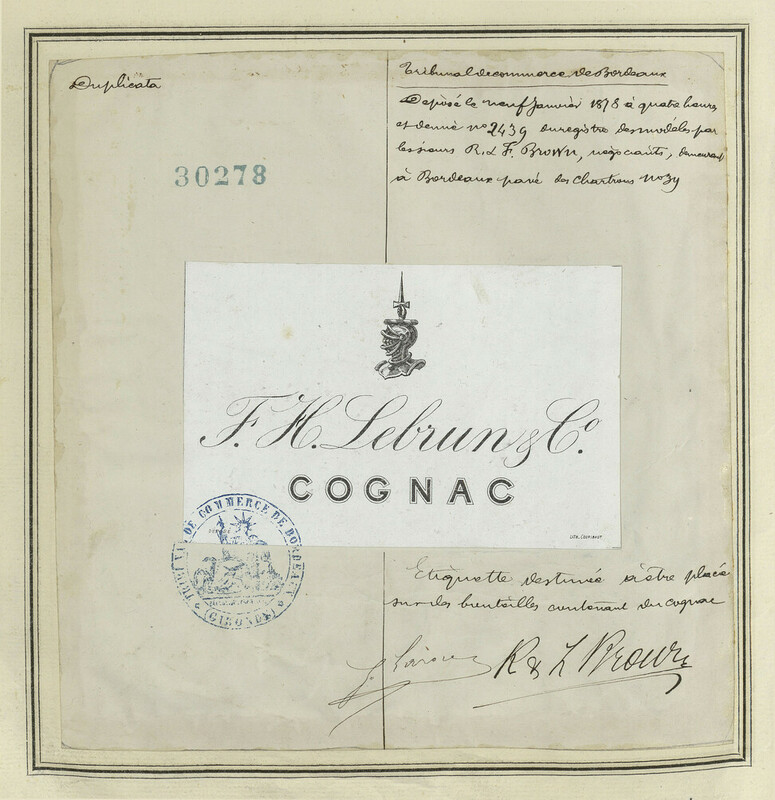 Duplicata
30278
Tribunal de commerce de Bordeaux
Déposé le neuf Janvier 1878 à quatre heures
et demie no 2439 du registre des modèles par
les sieurs R. & F. Brown, négociants, demeurant
à Bordeaux pavé des Chartrons no 39
F. H. Lebrun & Co.
COGNAC
TRIBUNAL DE COMMERCE DE BORDEAUX
(GIRONDE)
Etiquette destinée à être placée
sur des bouteilles contenant du cognac
R & L Brown